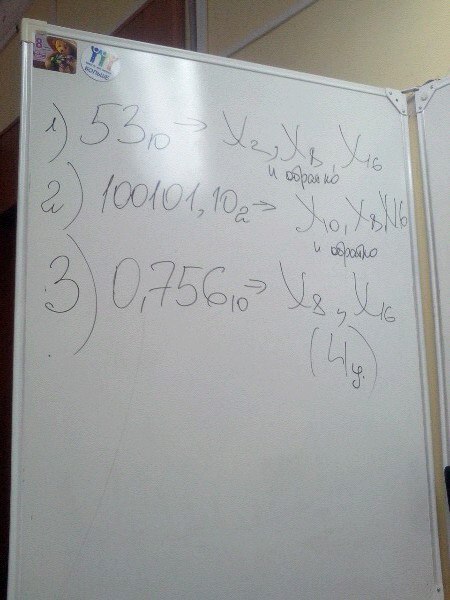 8
БОЛЬШЕ
1) 53₁₀ → X₂, X₈, X₁₆
и обратно
2) 100101,10₂ → X₁₀, X₈ X₁₆
и обратно
3) 0,756₁₀ → X₈, X₁₆
(4ц.)